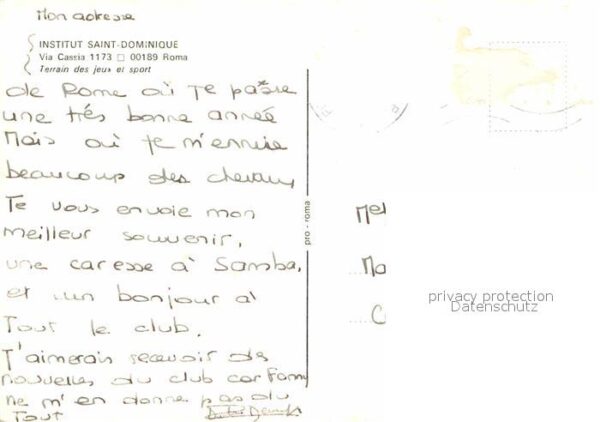 Mon adresse
INSTITUT SAINT-DOMINIQUE
Via Cassia 1173 □ 00189 Roma
Terrain des jeux et sport
de Rome où Je passe
une trés bonne année
Mais où je m'ennuie
beaucoup des chevaux,
Je vous envoie mon
meilleur souvenir,
une caresse à Samba,
et un bonjour à
Tout le club.
J'aimerais recevoir des
nouvelles du club car Fanny
ne m'en donne pas du
Tout
pro - roma
privacy protection
Datenschutz